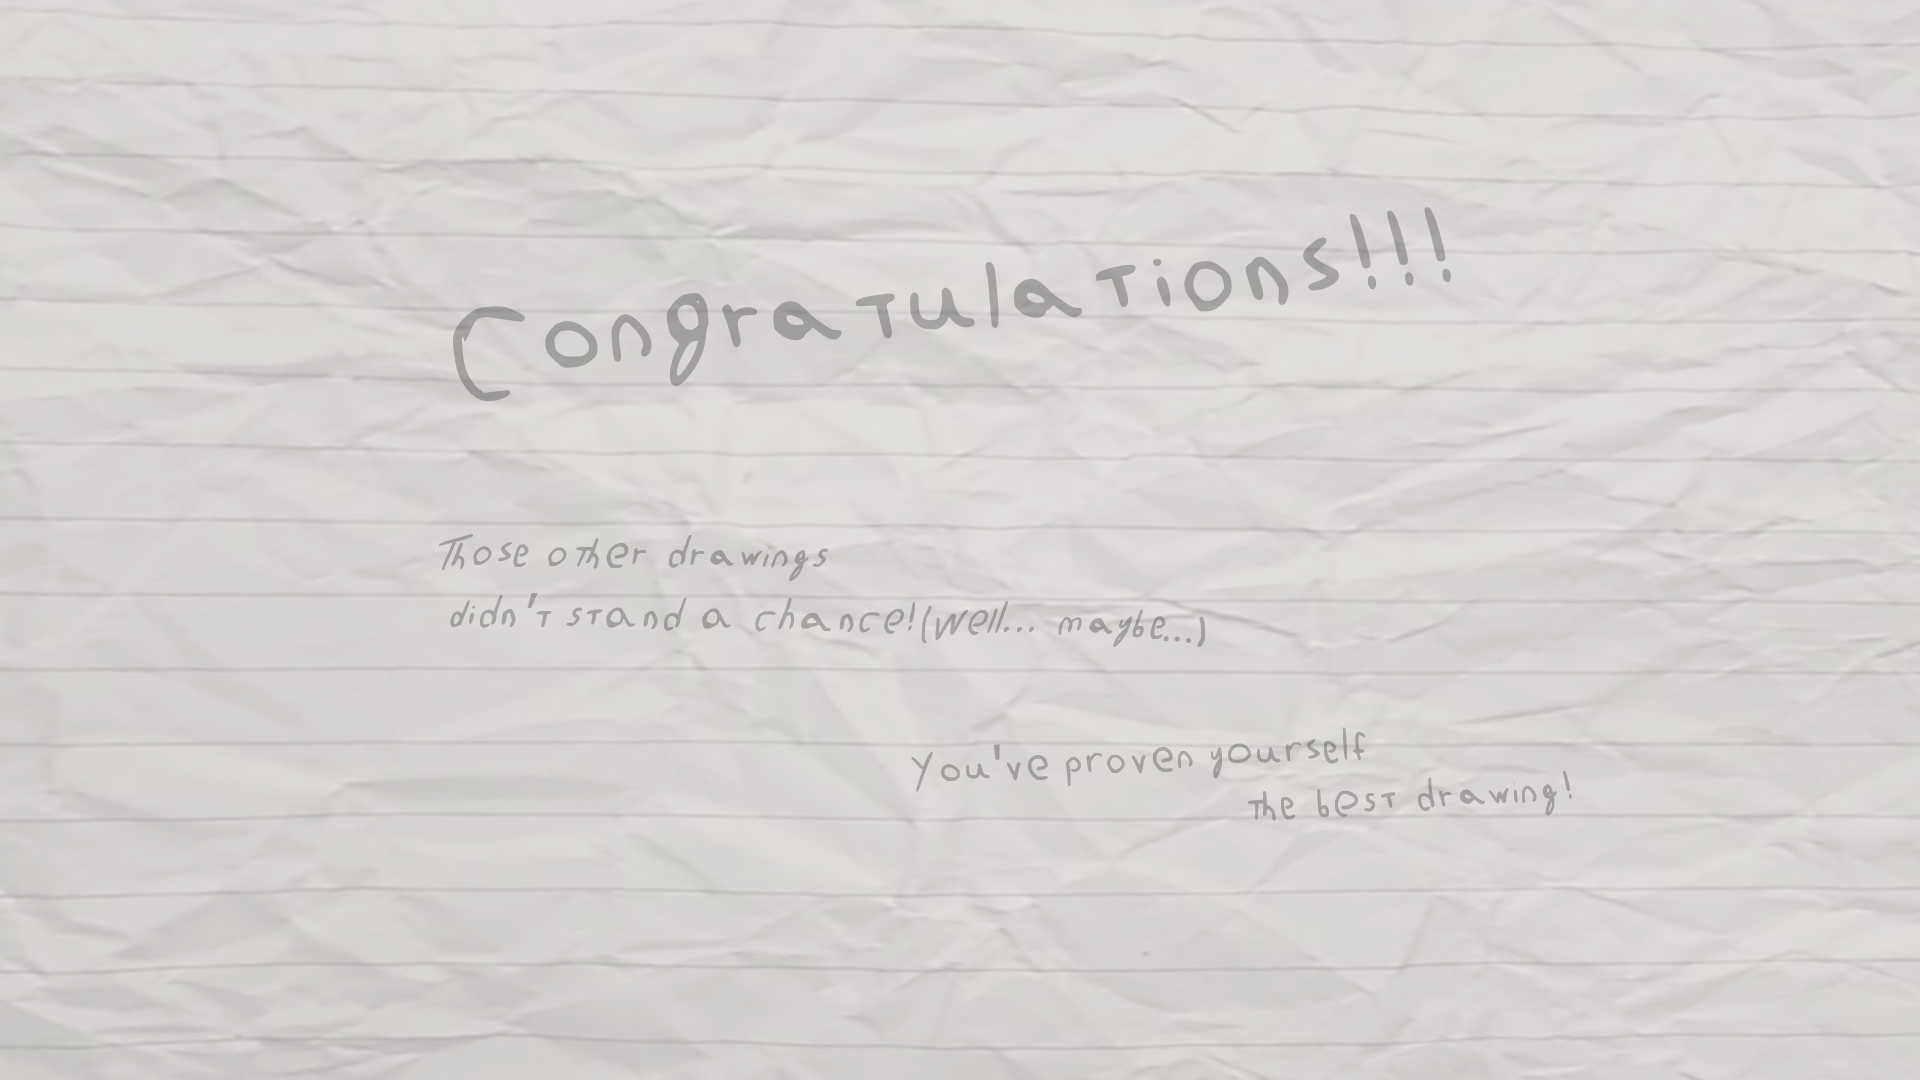 Congratulations!!!
Those other drawings
didn't stand a chance!(Well... maybe...)
You've proven yourself
the best drawing!